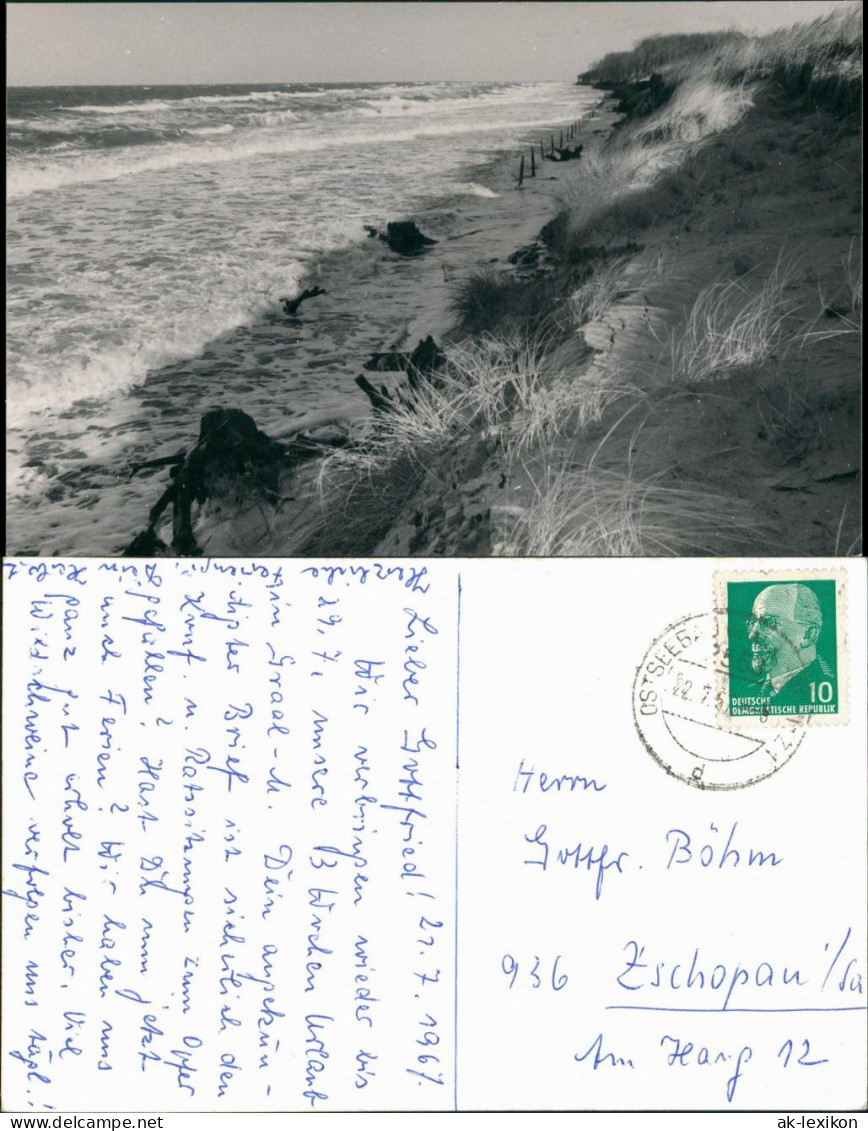 Lieber Gottfried! 21.7.1967.
Wir verbringen wieder bis
29.7. unsere 3 Wochen Urlaub
in Graal-M. Dein angekün-
digter Brief ist sicherlich den
Konf. u. Ratssitzungen zum Opfer
gefallen? Hast Dḧ nun jetzt
auch Ferien? Wir haben uns
ganz gut erholt bisher. Viel
Wildschweine verfregen uns tägl.!
Herzliche
OSTSEEBA
22.7.6
d
DEUTSCHE
DEMOKRATISCHE REPUBLIK
10
Herrn
Gottfr. Böhm
936 Zschopau/Sa
Am Hang 12
www.ansichtskarten-lexikon.de
ak-lexikon